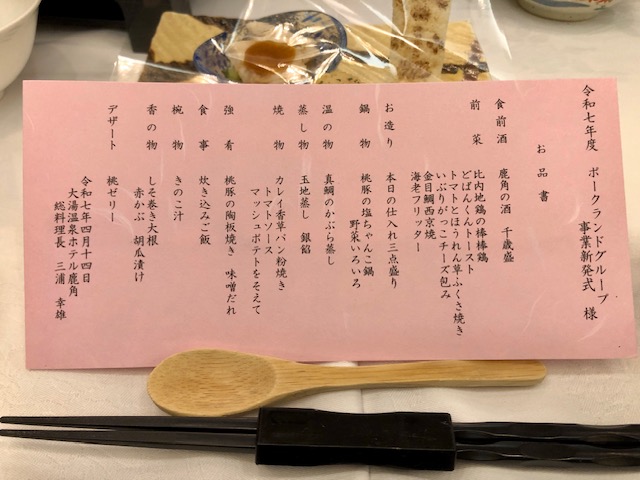 令和七年度 ポークランドグループ
事業新発式 様
お品書
食前酒 鹿角の酒 千歳盛
前菜 比内地鶏の棒棒鶏
どばんくんトースト
トマトとほうれん草ふくさ焼き
いぶりがっこチーズ包み
金目鯛西京焼
海老フリッター
お造り 本日の仕入れ三点盛り
鍋物 桃豚の塩ちゃんこ鍋
野菜いろいろ
温の物 真鯛のかぶら蒸し
蒸し物 玉地蒸し 銀餡
焼物 カレイ香草パン粉焼き
トマトソース
マッシュポテトをそえて
強肴 桃豚の陶板焼き 味噌だれ
食事 炊き込みご飯
椀物 きのこ汁
香の物 しそ巻き大根
赤かぶ 胡瓜漬け
デザート 桃ゼリー
令和七年四月十四日
大湯温泉ホテル鹿角
総料理長 三浦 幸雄